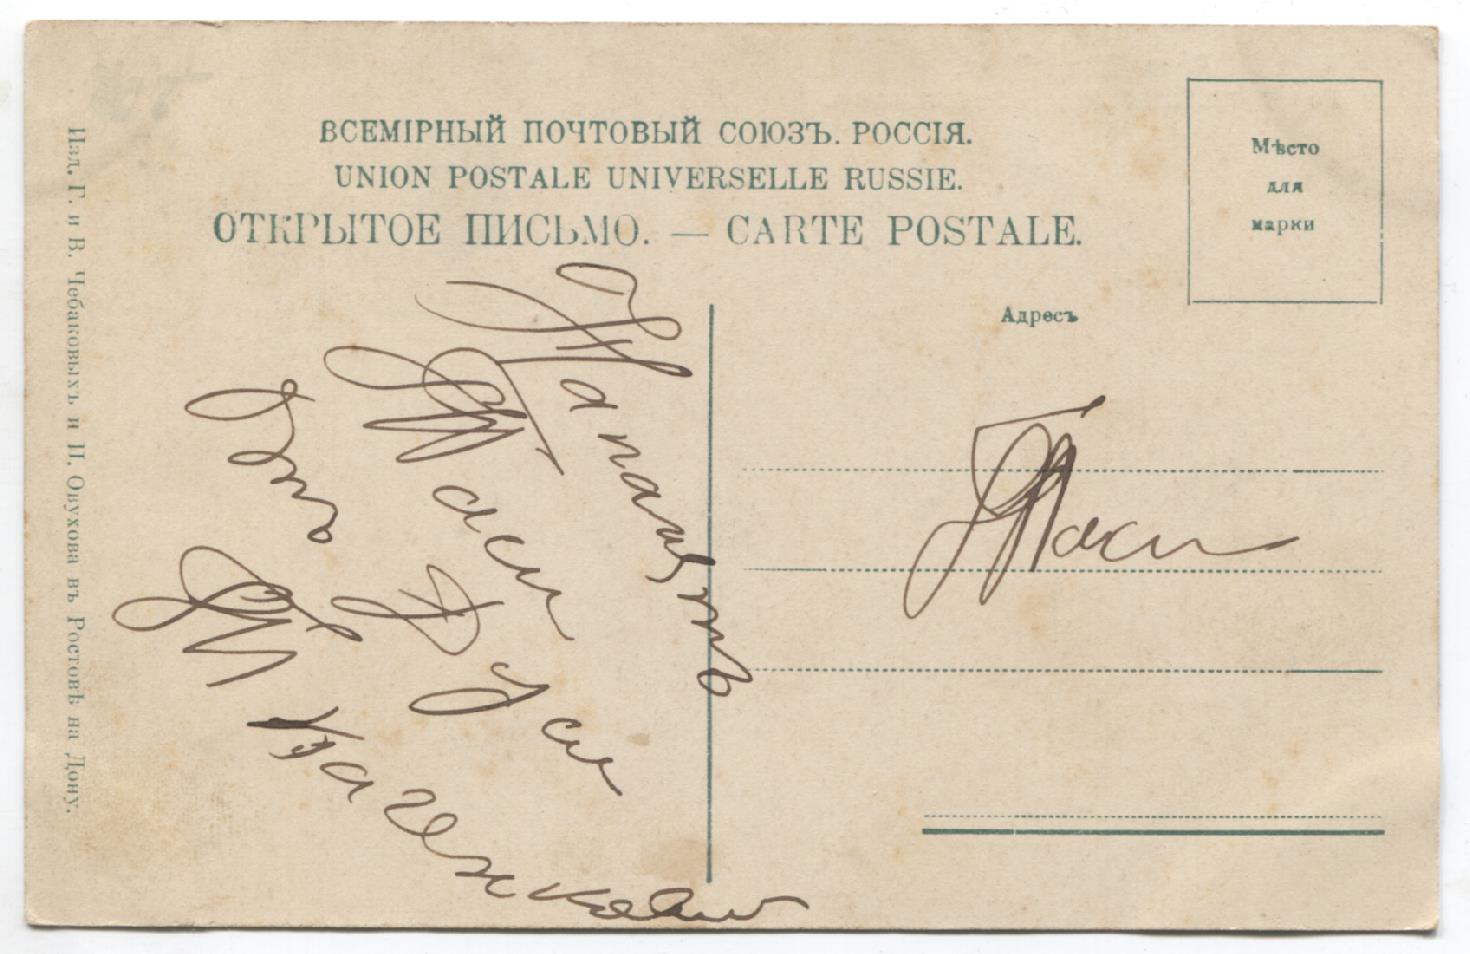 ВСЕМІРНЫЙ ПОЧТОВЫЙ СОЮЗЪ. РОССІЯ.
UNION POSTALE UNIVERSELLE RUSSIE.
ОТКРЫТОЕ ПИСЬМО. — CARTE POSTALE.
Мѣсто
для
марки
Адресъ
На память
Таси
отъ Дуси
Ткаченковой
Таси
Изд. Г. и В. Чебаковыхъ и П. Овухова въ Ростовѣ на Дону.